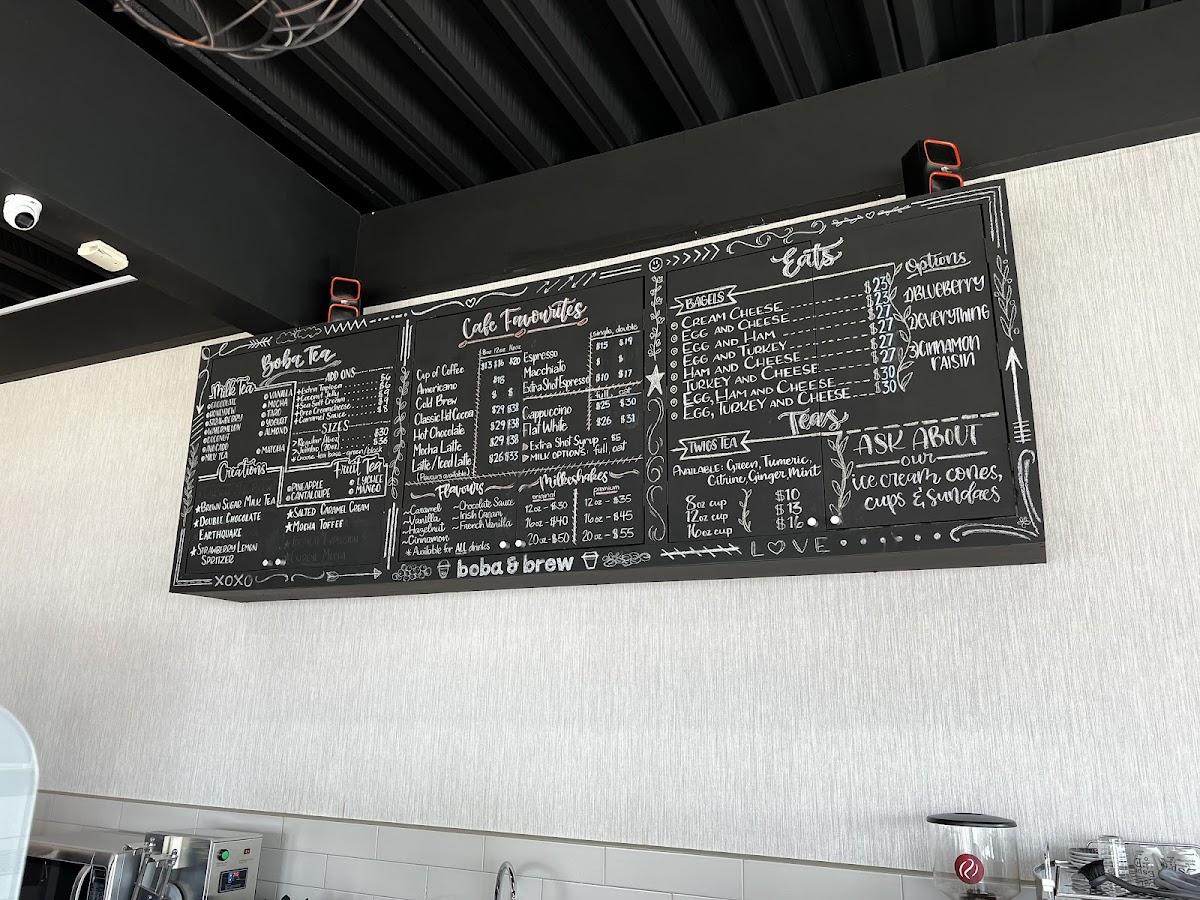 Boba Tea
Milk Tea
CHOCOLATE
HONEYDEW
STRAWBERRY
WATERMELON
COCONUT
AVOCADO
MILK TEA
VANILLA
MOCHA
TARO
YOGURT
ALMOND
MATCHA
ADD ONS
Extra Tapioca
Coconut Jelly
Sea Salt Cream
Oreo Creamcheese
Caramel Sauce
SIZES
Regular (16oz) $30
Jumbo (20oz) $36
Choose tea base - green/black
Creations
BROWN SUGAR MILK TEA
DOUBLE CHOCOLATE
EARTHQUAKE
STRAWBERRY LEMON
SPRITZER
Fruit Tea
PINEAPPLE
CANTALOUPE
LYCHEE
MANGO
SALTED CARAMEL CREAM
MOCHA TOFFEE
XOXO
Cafe Favourites
8oz 12oz 16oz
Cup of Coffee $13 $16 $20
Americano $18
Cold Brew $ $
Classic Hot Cocoa $29 $38
Hot Chocolate $29 $38
Mocha Latte $29 $38
Latte/Iced Latte $26 $33
(Flavours available)
single, double
Espresso $15 $19
Macchiato
Extra Shot Espresso $10 $17
full, oat
Cappuccino $25 $30
Flat White $26 $31
Extra Shot Syrup - $5
MILK OPTIONS: full, oat
Flavours
~Caramel
~Vanilla
~Hazelnut
~Cinnamon
~Chocolate Sauce
~Irish Cream
~French Vanilla
* Available for ALL drinks
Milkshakes
original
12oz - $30
16oz - $40
20oz - $50
premium
12oz - $35
16oz - $45
20oz - $55
boba & brew
Eats
BAGELS
CREAM CHEESE $23
EGG AND CHEESE $23
EGG AND HAM $27
EGG AND TURKEY $27
HAM AND CHEESE $27
TURKEY AND CHEESE $27
EGG, HAM AND CHEESE $30
EGG, TURKEY AND CHEESE $30
Options
1) BLUEBERRY
2) EVERYTHING
3) CINNAMON
RAISIN
Teas
TWIGS TEA
AVAILABLE: Green, Tumeric,
Citrine, Ginger, Mint
8oz cup $10
12oz cup $13
16oz cup $16
ASK ABOUT
our
ice cream cones,
cups & sundaes
LOVE